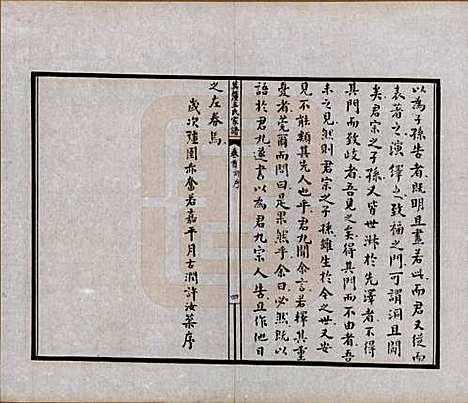 以為子孫告者既明且盡若此而君又從而
表著之演繹之致福之門可謂洞且闢
矣君宗之子孫又皆世濟於先澤者不得
其門而致歧者吾見之矣得其門而不由者吾
未之見然則君宗之子孫雖生於今之世又安
見不能類其先人也乎君九聞余言若釋其重
憂者莞爾而問曰是果然乎余曰必然既以
語於君九遂書以為君九宗人告且作他日
之左券焉
歲次彊圉赤奮若嘉平月古潤許汝棻序
王氏家譜
卷首序
四